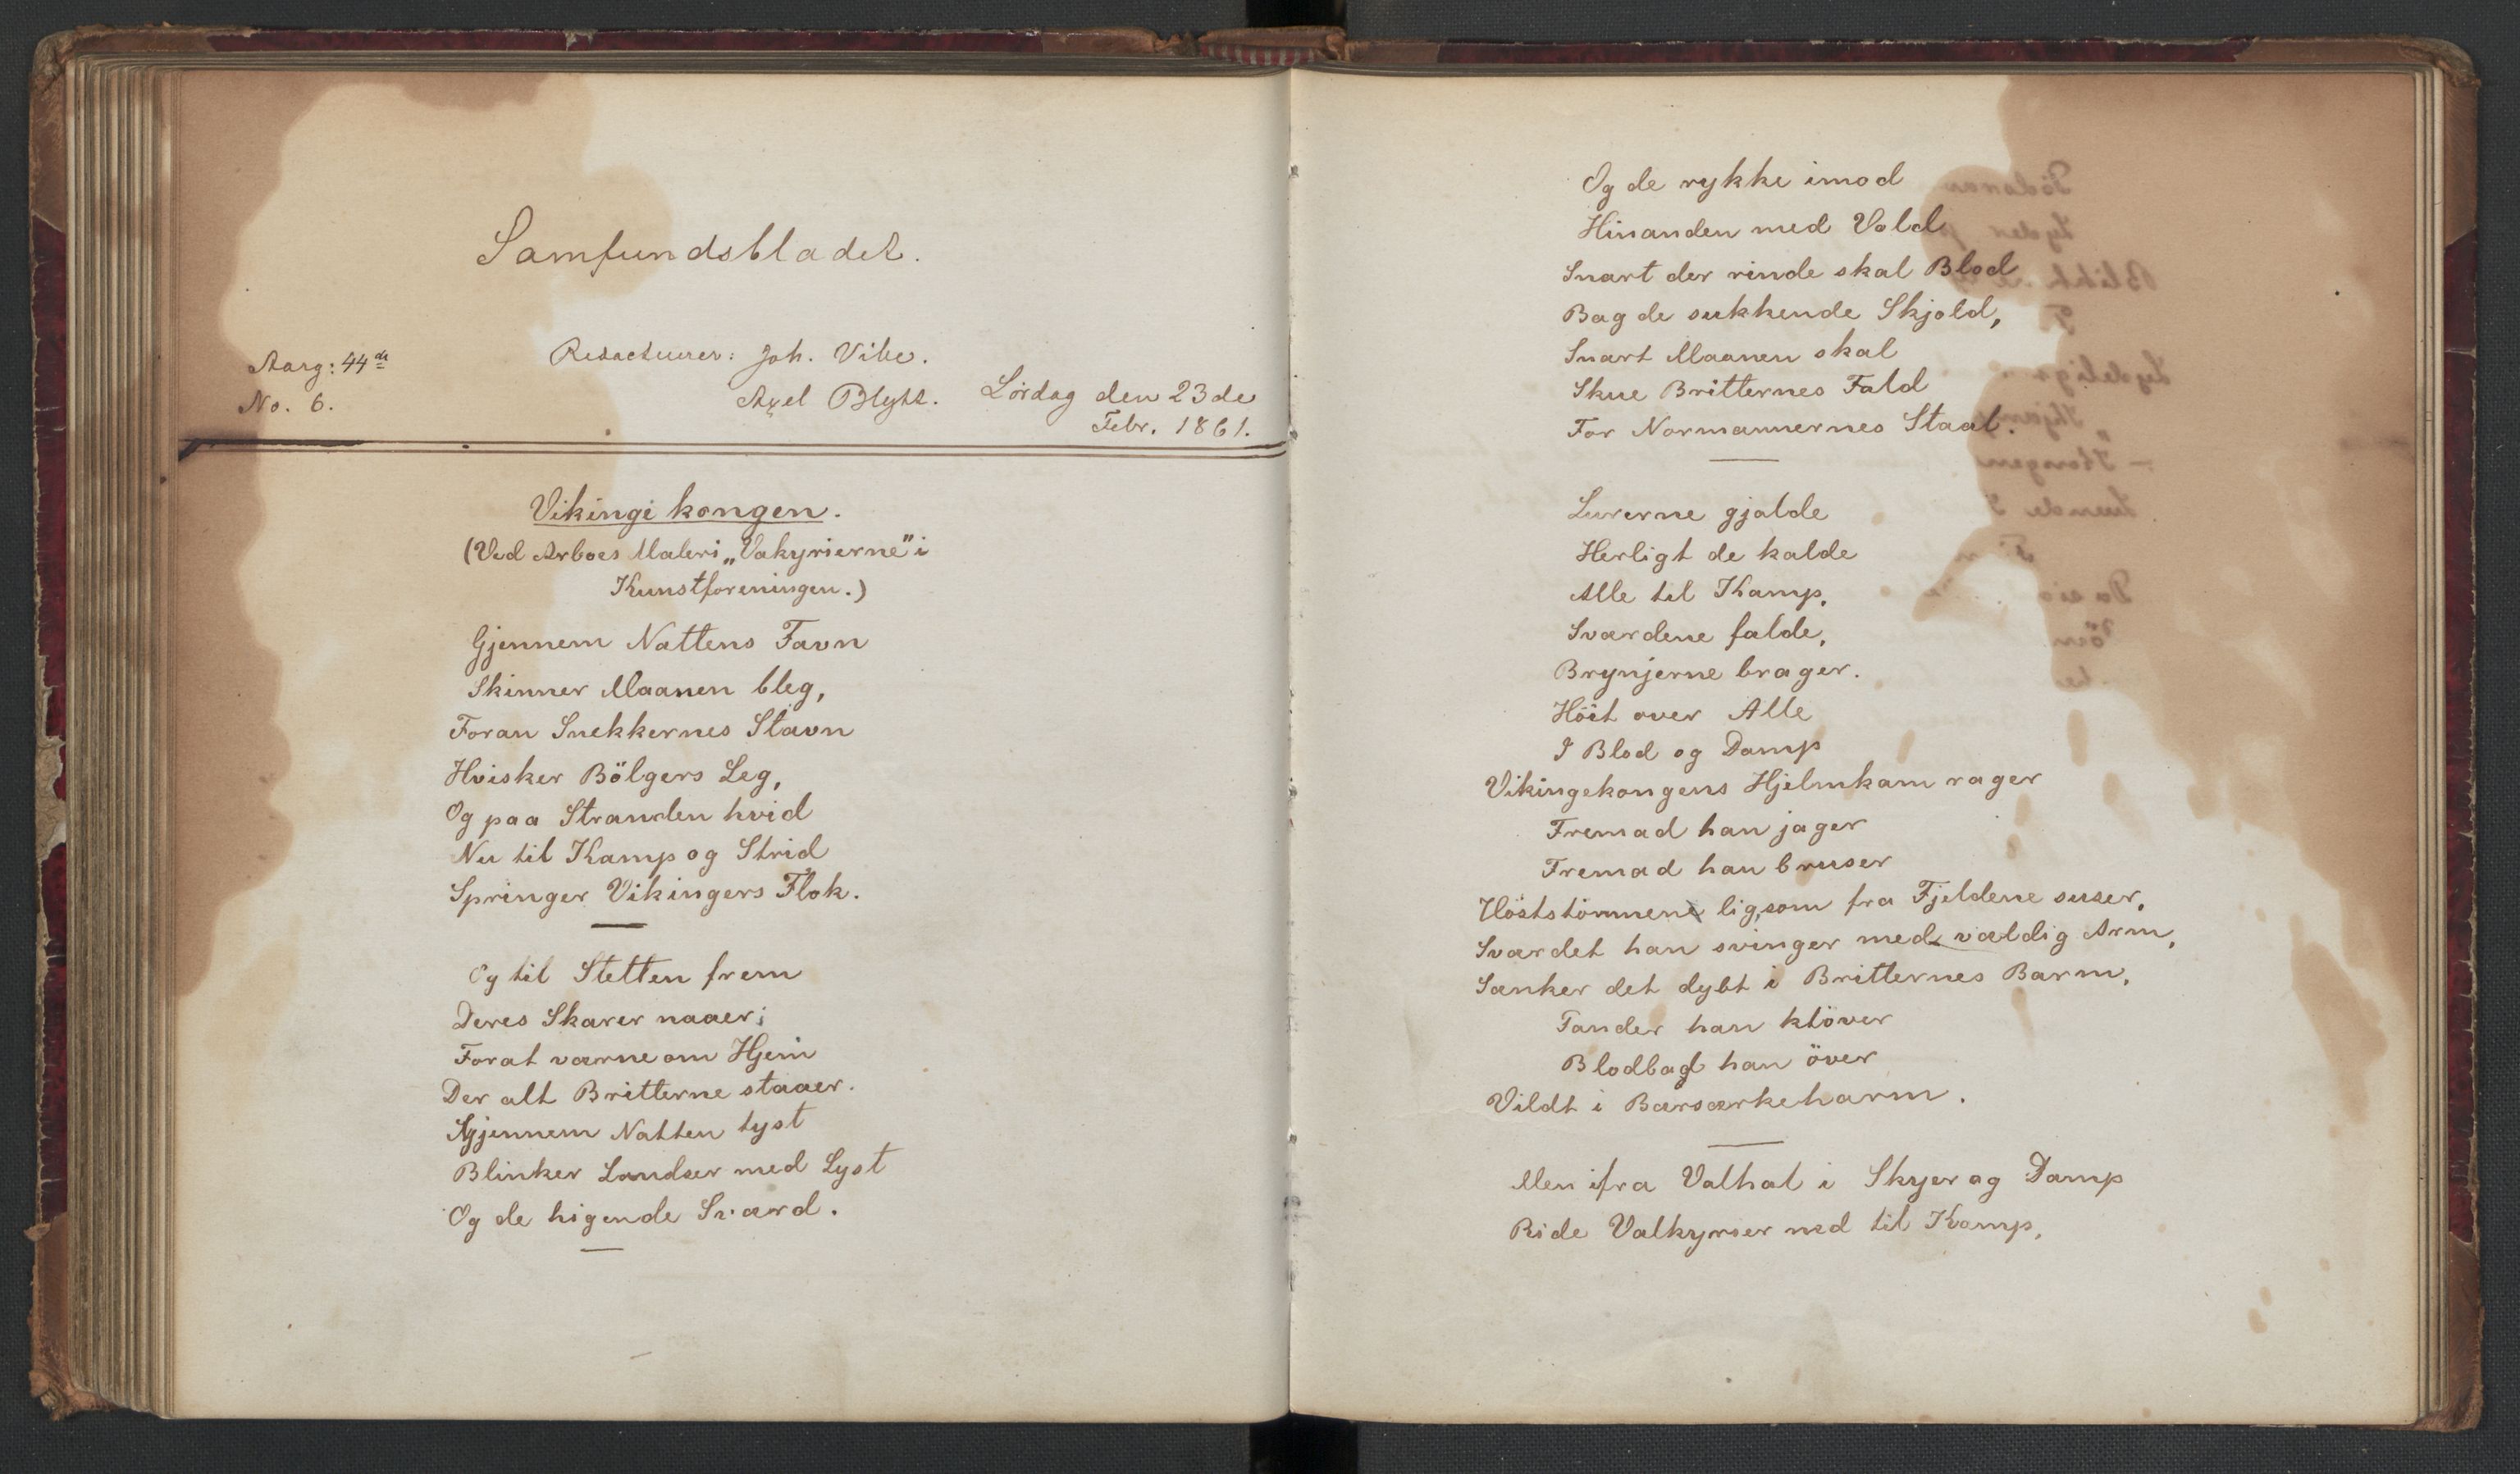 Samfundsbladet.
Redacteurer: Joh. Vibe.
Aarg: 44de
No. 6.
Axel Blytt.
Lördag den 23de
Febr. 1861.
Vikingekongen.
(Ved Arboes Maleri „Vakyrierne" i
Kunstforeningen.)
Gjennem Nattens Favn
Skinner Maanen bleg,
Foran Snekkernes Stavn
Hvisker Bölgers Leg,
Og paa Stranden hvid
Nu til Kamp og Strid
Springer Vikingers Flok.
Og til Sletten frem
Deres Skarer naaer;
For at værne om Hjem
Der alt Britterne staaer.
Gjennem Natten tyst
Blinker Landser med Lyst
Og de higende Sværd.
Og de rykke imod
Hinanden med Vold
Snart der rinde skal Blod
Bag de sukkende Skjold,
Snart Maanen skal
Skue Britternes Fald
For Normannernes Staal.
Lurerne gjalde
Herligt de kalde
Alle til Kamp,
Sværdene falde,
Brynjerne brager.
Höit over Alle
I Blod og Damp
Vikingekongens Hjelmkam rager
Fremad han jager
Fremad han bruser
Höststormene lig, som fra Fjeldene suser,
Sværdet han svinger med vældig Arm,
Sænker det dybt i Britternes Barm,
Pander han klöver
Blodbad han över
Vildt i Bærsærkeharm.
Men ifra Valhal i Skyer og Damp
Ride Valkyrier ned til Kamp,